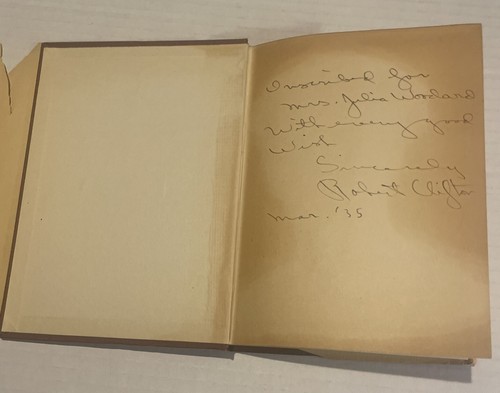 Inscribed for
Mrs. Julia Woodard
With every good
Wish
Sincerely
Robert Clifton
Mar. '35